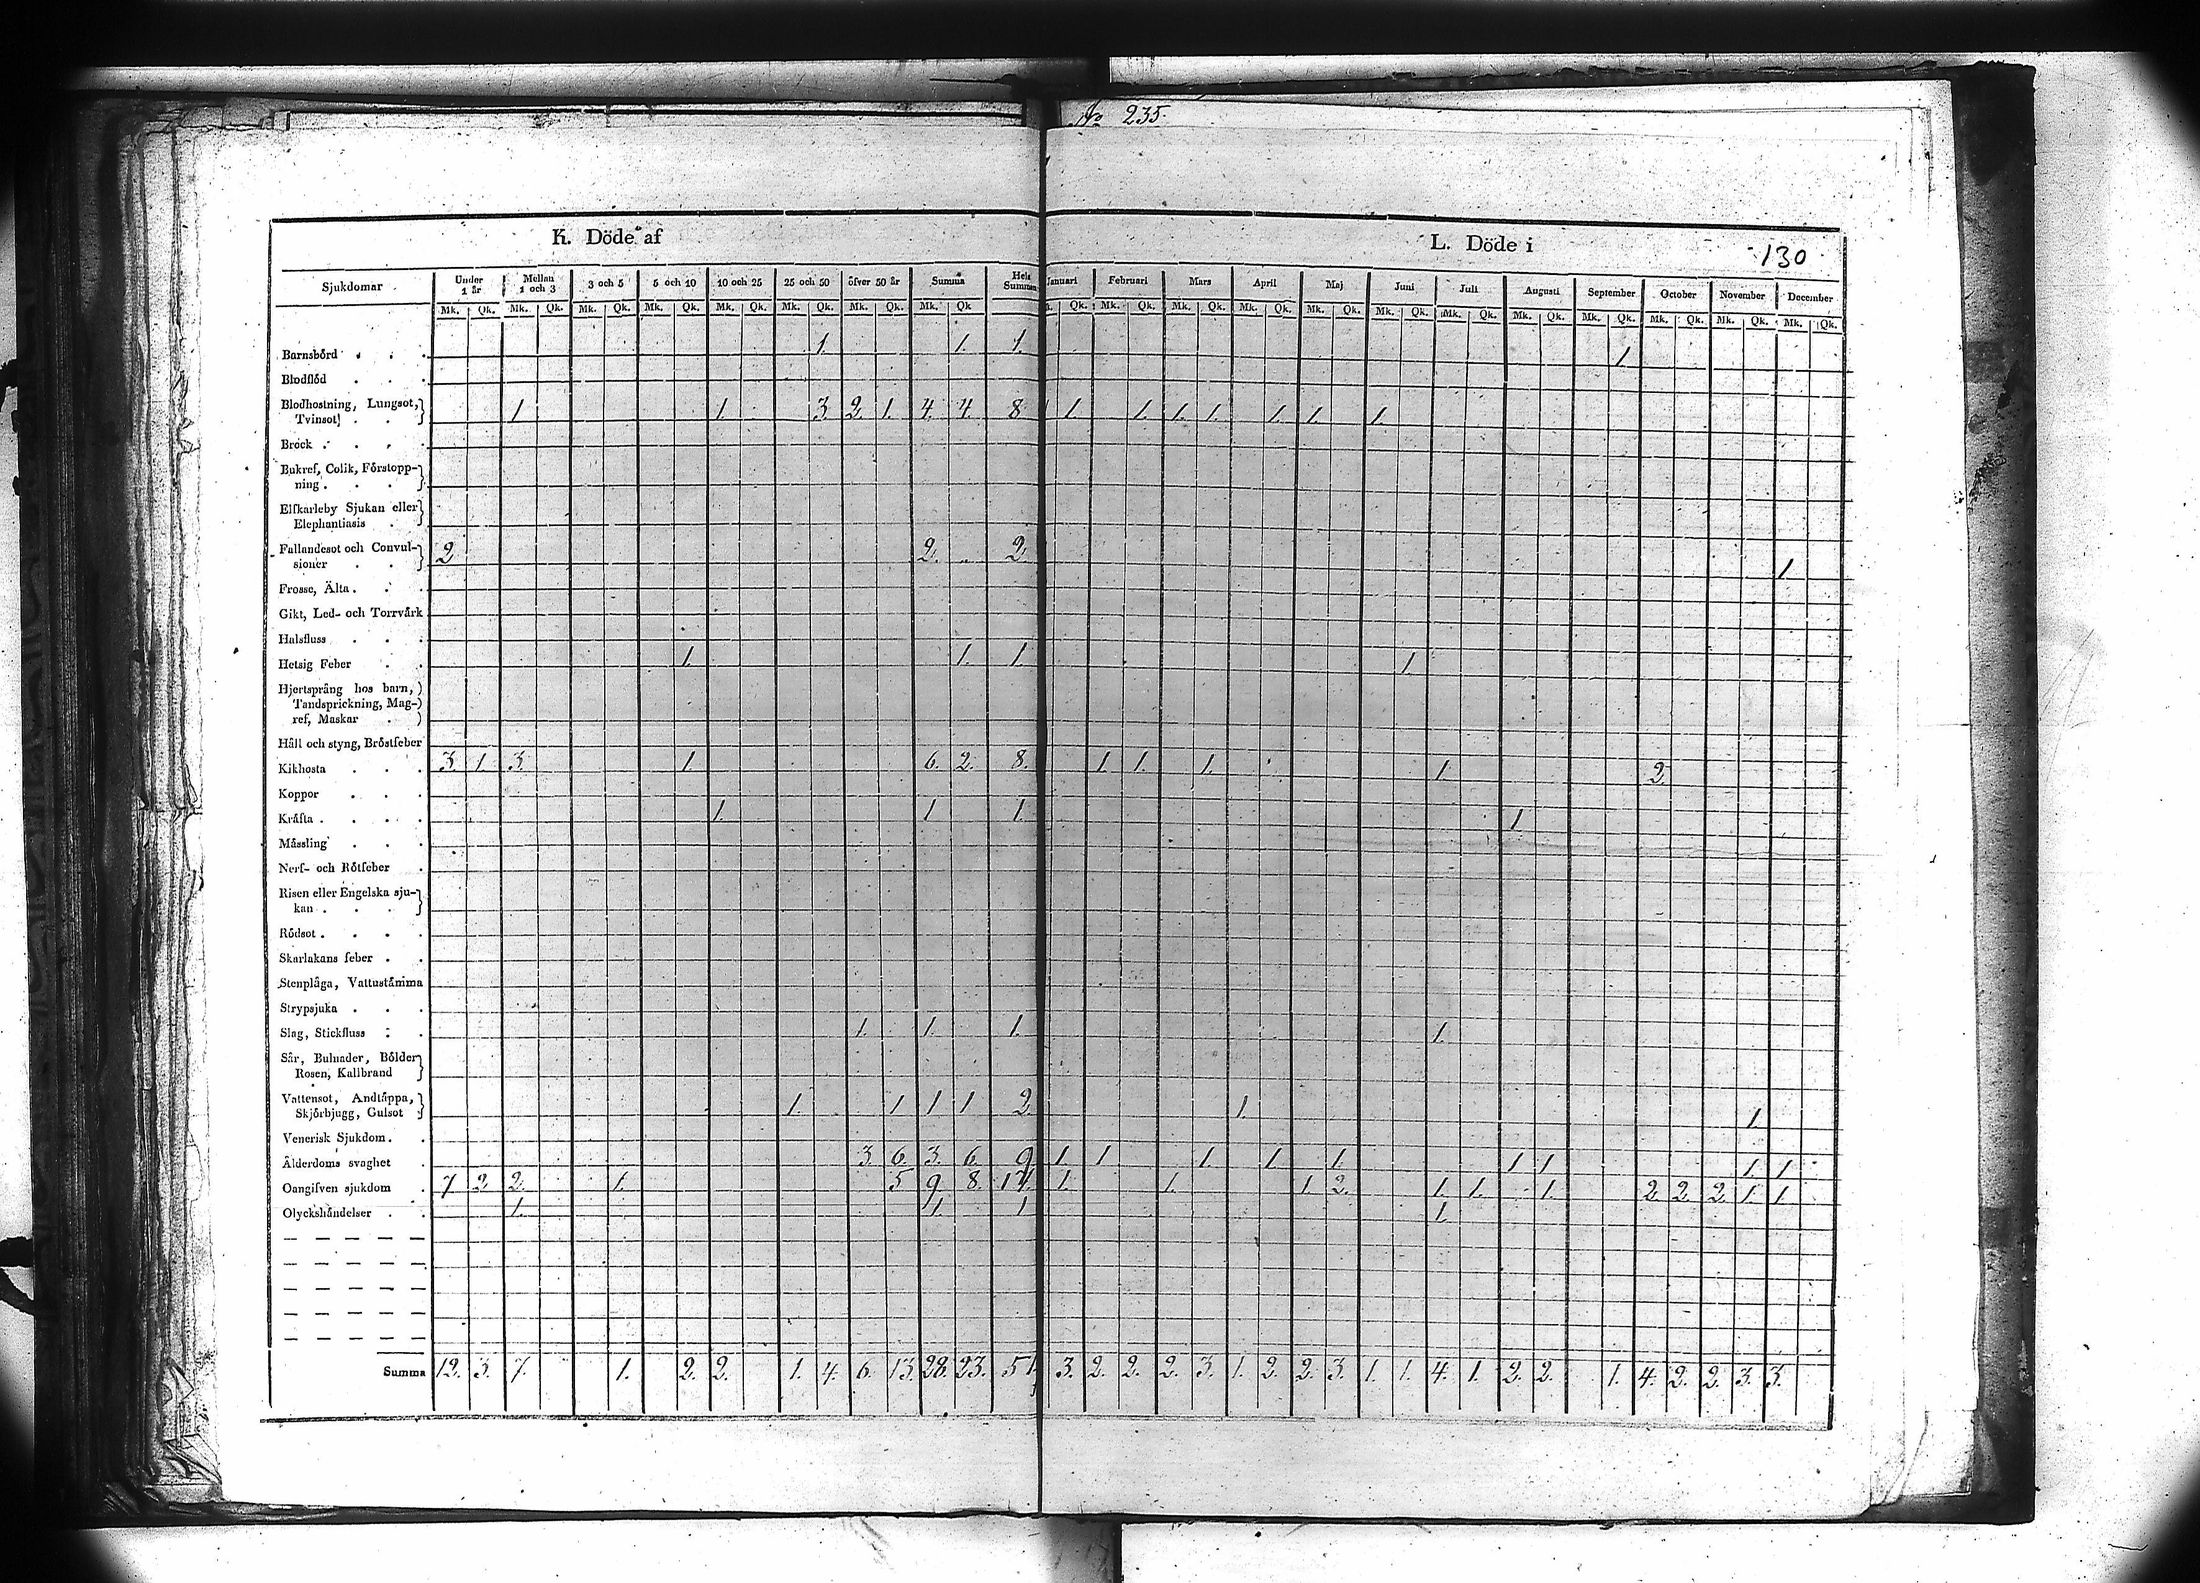 No 235.
K. Döde af
L. Döde i
130
Sjukdomar Under 1 år Mellan 1 och 3 3 och 5 5 och 10 10 och 25 25 och 50 öfver 50 år Summa Hela Summan Januari Februari Mars April Maj Juni Juli Augusti September October November December
Mk. Qk. Mk. Qk. Mk. Qk. Mk. Qk. Mk. Qk. Mk. Qk. Mk. Qk. Mk. Qk Qk. Mk. Qk. Mk. Qk. Mk. Qk. Mk. Qk. Mk. Qk. Mk. Qk. Mk. Qk. Mk. Qk. Mk. Qk. Mk. Qk. Mk. Qk.
Barnsbörd . . . 1. 1. 1. 1.
Blodflöd . . .
Blodhostning, Lungsot,
Tvinsot . . 1 1. 3. 2. 1. 4. 4. 8 1. 1. 1. 1. 1. 1. 1.
Bråck . . . .
Bukref, Colik, Förstopp-
ning . . .
Elfkarleby Sjukan eller
Elephantiasis .
Fallandesot och Convul-
sioner . . 2 2. „ 2. 1
Frossa, Älta . . .
Gikt, Led- och Torrvärk
Halsfluss . . .
Hetsig Feber . . 1. 1. 1. 1.
Hjertsprång hos barn,
Tandsprickning, Mag-
ref, Maskar .
Håll och styng, Bröstfeber
Kikhosta . . . 3. 1. 3. 1. 6. 2. 8. 1. 1. 1. 1. 2.
Koppor . . .
Kräfta . . . . 1. 1 1. 1
Mässling . . .
Nerf- och Rötfeber .
Risen eller Engelska sju-
kan . . .
Rödsot . . . .
Skarlakans feber . .
Stenplåga, Vattustämma
Strypsjuka . . .
Slag, Stickfluss . . 1. 1. 1. 1.
Sår, Bulnader, Bölder
Rosen, Kallbrand
Vattensot, Andtäppa,
Skjörbjugg, Gulsot 1. 1 1 1 2. 1. 1
Venerisk Sjukdom . .
Ålderdoms svaghet . 3. 6. 3. 6. 9 1 1 1. 1. 1. 1 1 1. 1
Oangifven sjukdom . 7 2 2. 1. 5 9. 8. 17. 1. 1. 1. 2. 1. 1. 1. 2. 2. 2. 1. 1
Olyckshändelser . . 1. 1. 1 1.
Summa 12. 3. 7. 1. 2. 2. 1. 4. 6. 13. 28. 23. 51. 3. 2. 2. 2. 3. 1. 2. 2. 3. 1. 1. 4. 1. 2. 2. 1. 4. 2. 2. 3. 3.